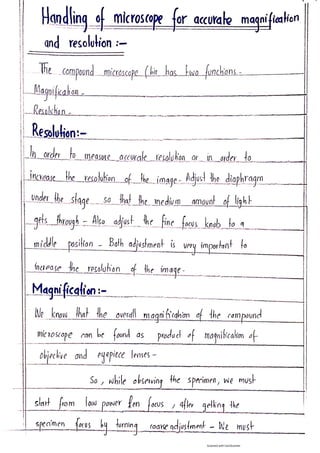 Handling of microscope for accurate magnification
and resolution :-
The compound microscope has two functions -
Magnification -
Resolution -
Resolution:-
In order to measure accurate resolution or in order to
increase the resolution of the image - Adjust the diaphragm
under the stage so that the medium amount of light
gets through - Also adjust the fine focus knob to a
middle position - Both adjustment is very important to
increase the resolution of the image -
Magnification:-
We know that the overall magnification of the compound
microscope can be found as product of magnification of
objective and eyepiece lenses -
So, while observing the specimen, we must
start from low power focus, after getting the
specimen focus by turning coarse adjustment - We must
Scanned with CamScanner